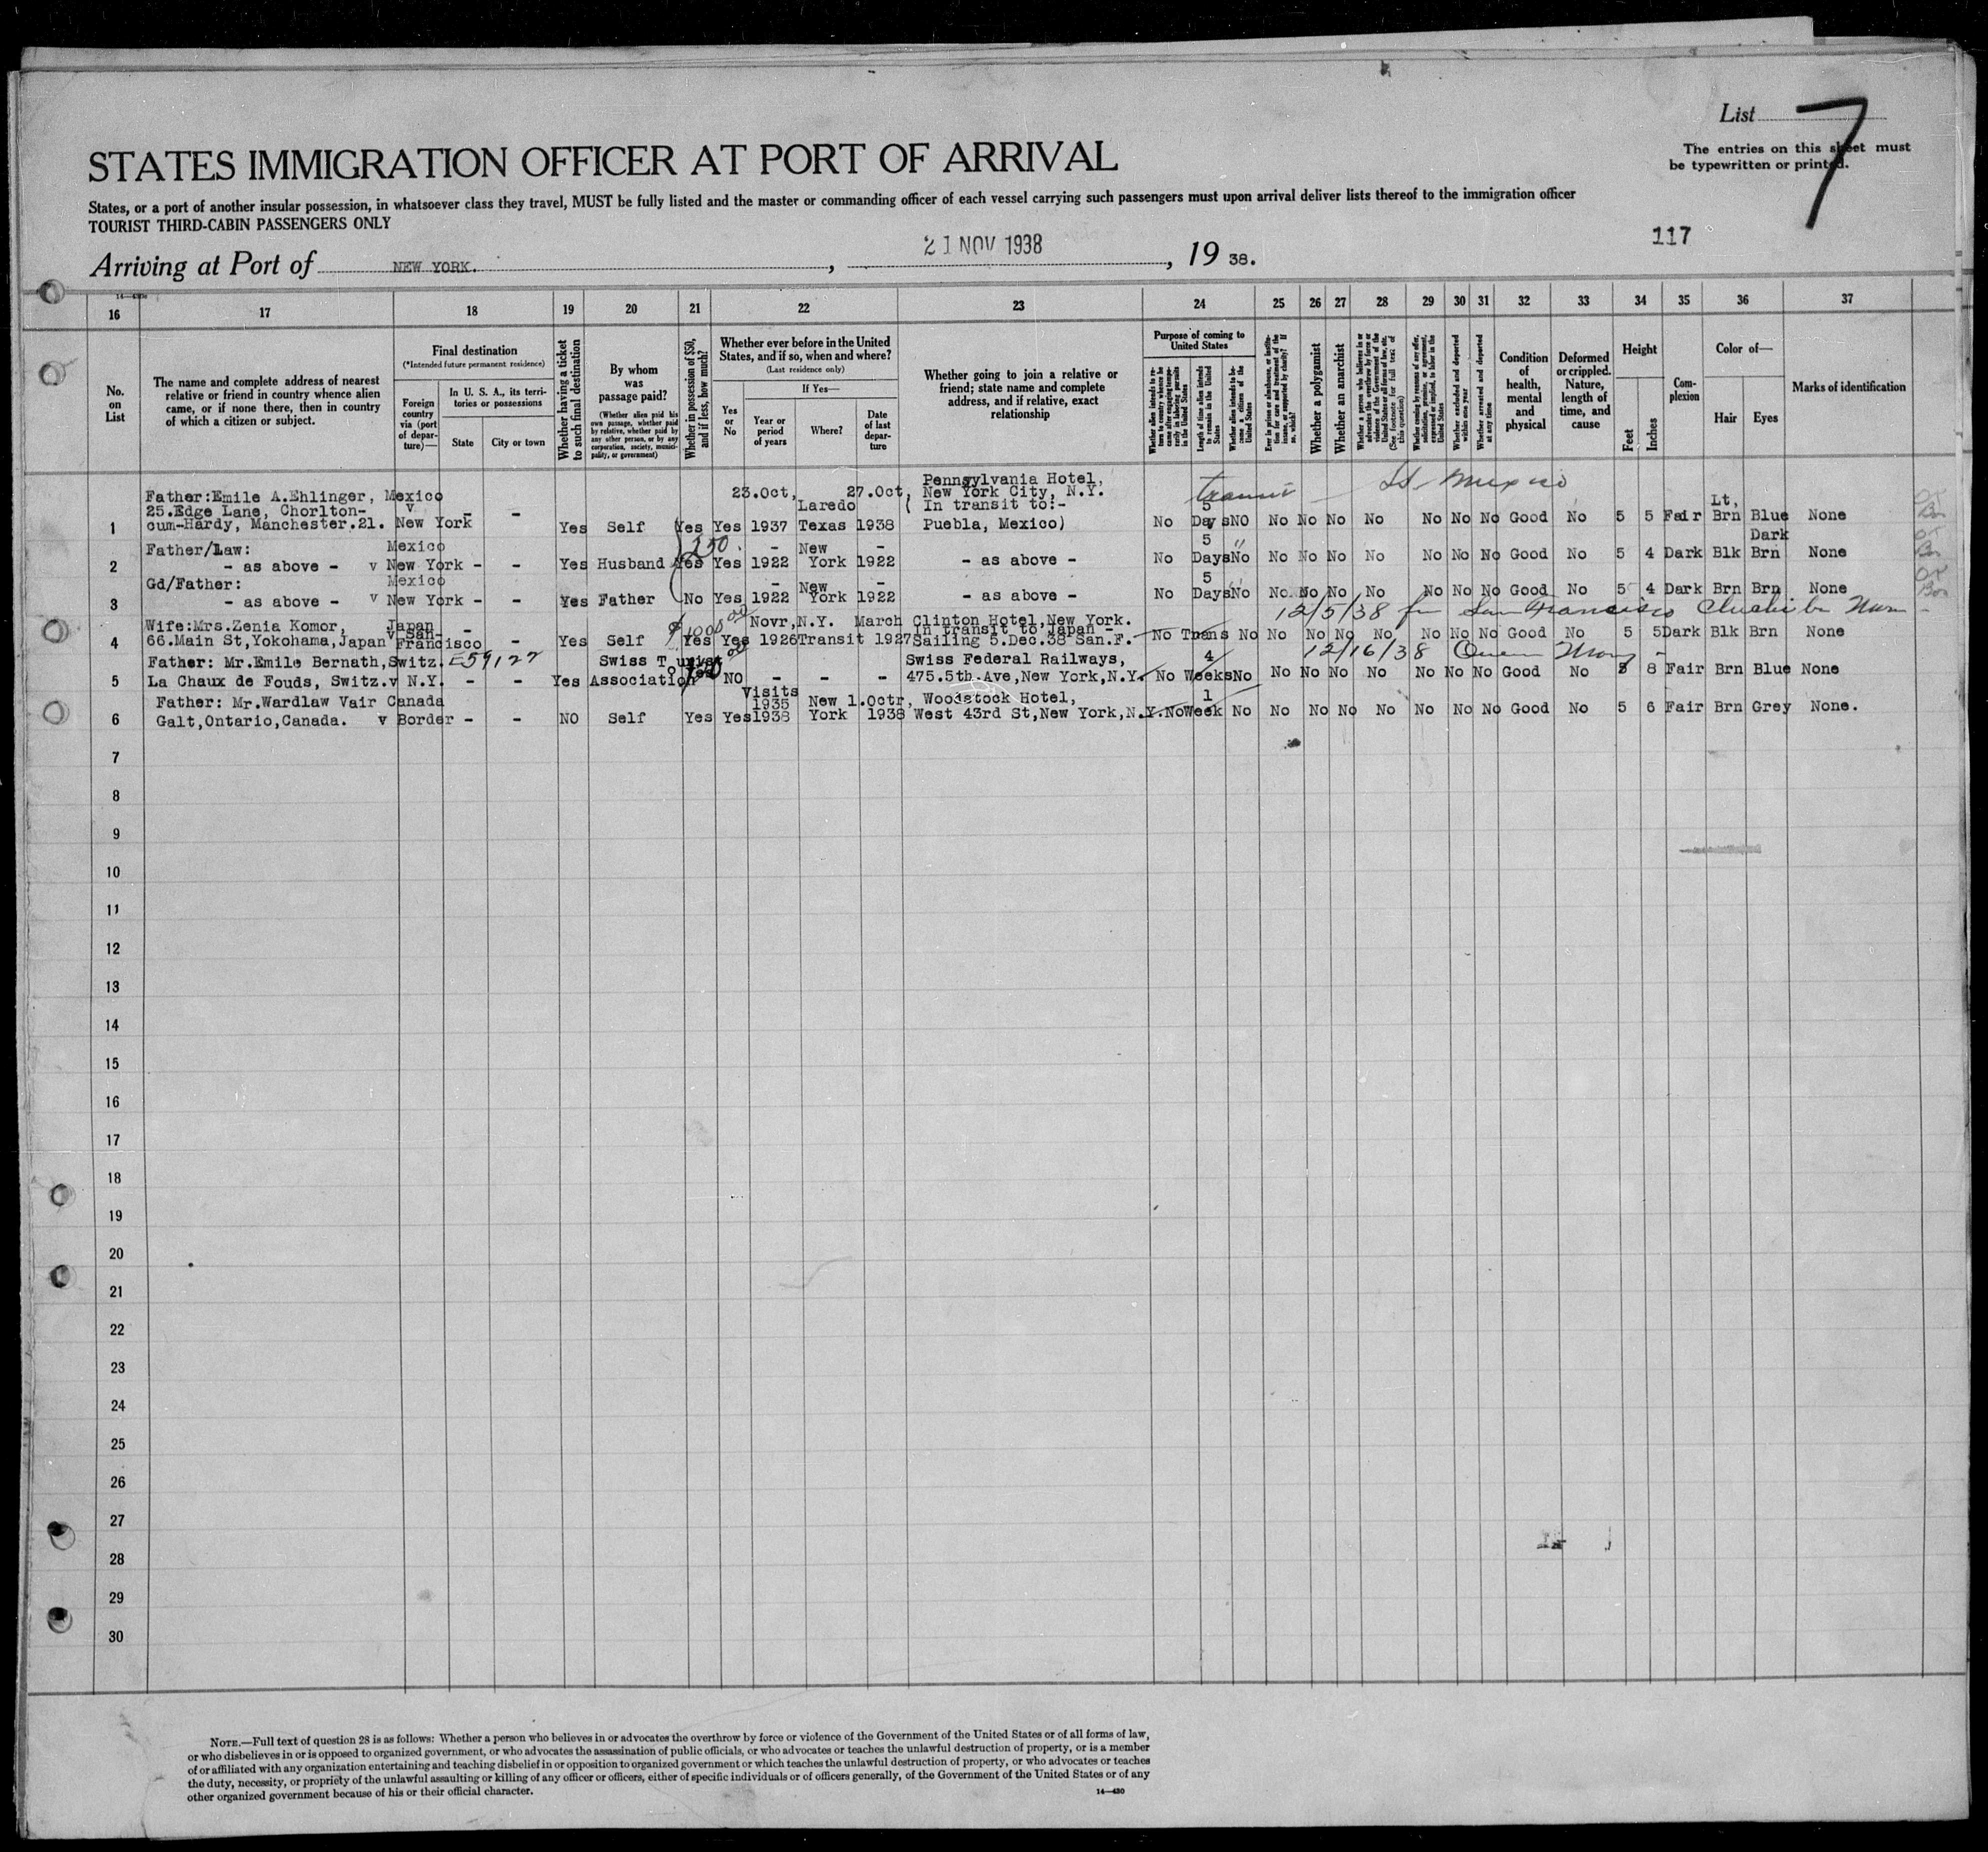 List 7
The entries on this sheet must
be typewritten or printed.
STATES IMMIGRATION OFFICER AT PORT OF ARRIVAL
States, or a port of another insular possession, in whatsoever class they travel, MUST be fully listed and the master or commanding officer of each vessel carrying such passengers must upon arrival deliver lists thereof to the immigration officer
TOURIST THIRD-CABIN PASSENGERS ONLY
117
Arriving at Port of NEW YORK. , 21 NOV 1938 , 19 38.
16 17 18 19 20 21 22 23 24 25 26 27 28 29 30 31 32 33 34 35 36 37
No. on List
The name and complete address of nearest
relative or friend in country whence alien
came, or if none there, then in country
of which a citizen or subject.
Final destination
(*Intended future permanent residence)
Foreign country via (port of departure)—
In U. S. A., its territories or possessions
State
City or town
Whether having a ticket to such final destination
By whom was passage paid?
(Whether alien paid his own passage, whether paid by relative, whether paid by any other person, or by any corporation, society, municipality, or government)
Whether in possession of $50, and if less, how much?
Whether ever before in the United
States, and if so, when and where?
(Last residence only)
Yes or No
If Yes—
Year or period of years
Where?
Date of last departure
Whether going to join a relative or
friend; state name and complete
address, and if relative, exact
relationship
Purpose of coming to
United States
Length of time alien intends to remain in the United States
Whether alien intends to become a citizen of the United States
Whether a polygamist
Whether an anarchist
Whether excluded and deported within one year
Whether arrested and deported at any time
Condition of health, mental and physical
Deformed or crippled. Nature, length of time, and cause
Height
Feet
Inches
Complexion
Color of—
Hair
Eyes
Marks of identification
transit
Mexico
Father:Emile A.Ehlinger, Mexico 23.Oct, 27.Oct, Pennsylvania Hotel,
25.Edge Lane, Chorlton- v - - Laredo New York City, N.Y. Lt,
1 cum-Hardy, Manchester.21. New York Yes Self Yes Yes 1937 Texas 1938 ( In transit to:- Puebla, Mexico) No 5 Days NO No No No No No No No Good No 5 5 Fair Brn Blue None
250.
Father/Law: Mexico - New - 5 Dark
2 - as above - v New York - - Yes Husband Yes Yes 1922 York 1922 - as above - No Days No No No No No No No No Good No 5 4 Dark Blk Brn None
Gd/Father: Mexico - New - 5
3 - as above - v New York - - Yes Father No Yes 1922 York 1922 - as above - No Days No No No No No No No No Good No 5 4 Dark Brn Brn None
12/5/38 San Francisco
Wife:Mrs.Zenia Komor, Japan - $1000 00 Novr, N.Y. March Clinton Hotel,New York.
In transit to Japan -
4 66.Main St,Yokohama,Japan v San-Francisco - Yes Self Yes Yes 1926 Transit 1927 Sailing 5.Dec.38 San.F. No Trans No No No No No No No No Good No 5 5 Dark Blk Brn None
12/16/38 Queen Mary
Father: Mr.Emile Bernath, Switz. E59122 Swiss Tourist Swiss Federal Railways, 4
5 La Chaux de Fouds, Switz. v N.Y. - - Yes Association Yes NO - - - 475.5th.Ave,New York,N.Y. No Weeks No No No No No No No No Good No 5 8 Fair Brn Blue None
Father: Mr.Wardlaw Vair Canada Visits 1935 New 1.Octr, Woodstock Hotel, 1
6 Galt,Ontario,Canada. v Border - - NO Self Yes Yes 1938 York 1938 West 43rd St,New York,N.Y. No Week No No No No No No No No Good No 5 6 Fair Brn Grey None.
7
8
9
10
11
12
13
14
15
16
17
18
19
20
21
22
23
24
25
26
27
28
29
30
NOTE.—Full text of question 28 is as follows: Whether a person who believes in or advocates the overthrow by force or violence of the Government of the United States or of all forms of law,
or who disbelieves in or is opposed to organized government, or who advocates the assassination of public officials, or who advocates or teaches the unlawful destruction of property, or is a member
of or affiliated with any organization entertaining and teaching disbelief in or opposition to organized government or which teaches the unlawful destruction of property, or who advocates or teaches
the duty, necessity, or propriety of the unlawful assaulting or killing of any officer or officers, either of specific individuals or of officers generally, of the Government of the United States or of any
other organized government because of his or their official character.
14—430